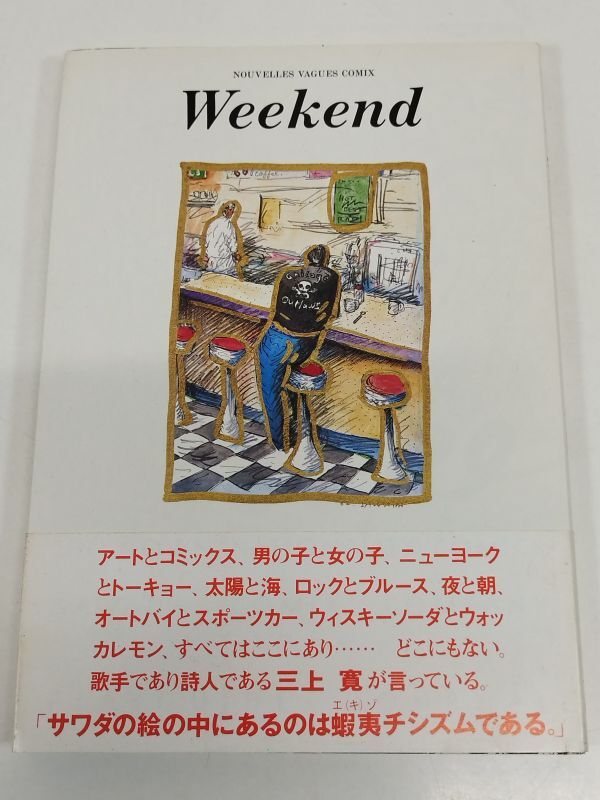 NOUVELLES VAGUES COMIX
Weekend
coffee.
Garbage
Outlaws
アートとコミックス、男の子と女の子、ニューヨーク
とトーキョー、太陽と海、ロックとブルース、夜と朝、
オートバイとスポーツカー、ウィスキーソーダとウォッ
カレモン、すべてはここにあり…… どこにもない。
歌手であり詩人である三上 寛が言っている。
エ(キ)ゾ
「サワダの絵の中にあるのは蝦夷チシズムである。」